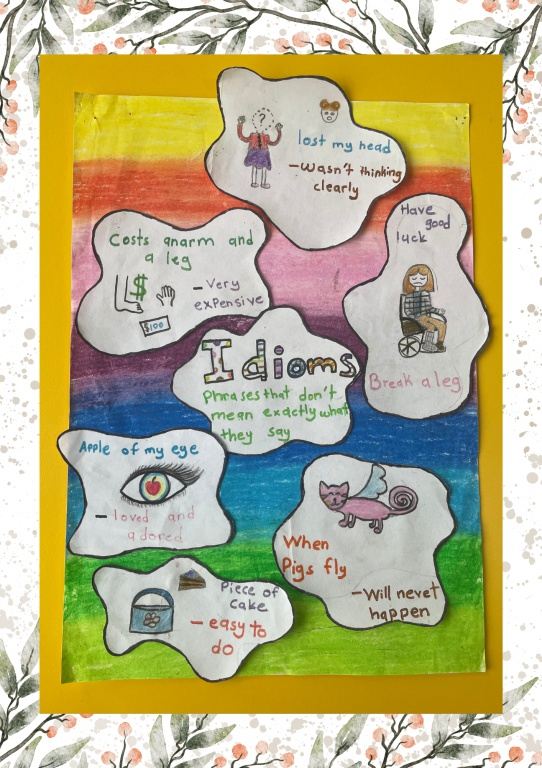 lost my head
- Wasn't thinking
clearly
Costs anarm and
a leg
$
- Very
expensive
$100
Have
good
luck
Break a leg
Idioms
Phrases that don't
mean exactly what
they say
Apple of my eye
- loved and
adored
When
Pigs fly
- Will nevet
happen
Piece of
cake
- easy to
do
?